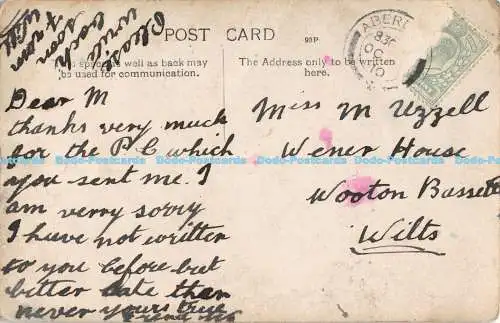 Please
write
back
soon
from
Will
POST CARD
93P
This space as well as back may
be used for communication.
The Address only to be written
here.
ABER
830
OC
10
Dear M
thanks very much
for the P C which
you sent me. I
am verry sorry
I have not written
to you before but
bitter late than
never yours true
Miss M Uzzell
Wener House
Wooton Bassett
Wilts
Dodo-Postcards Dodo-Postcards Dodo-Postcards Dodo-Postcards Dodo-Postcards